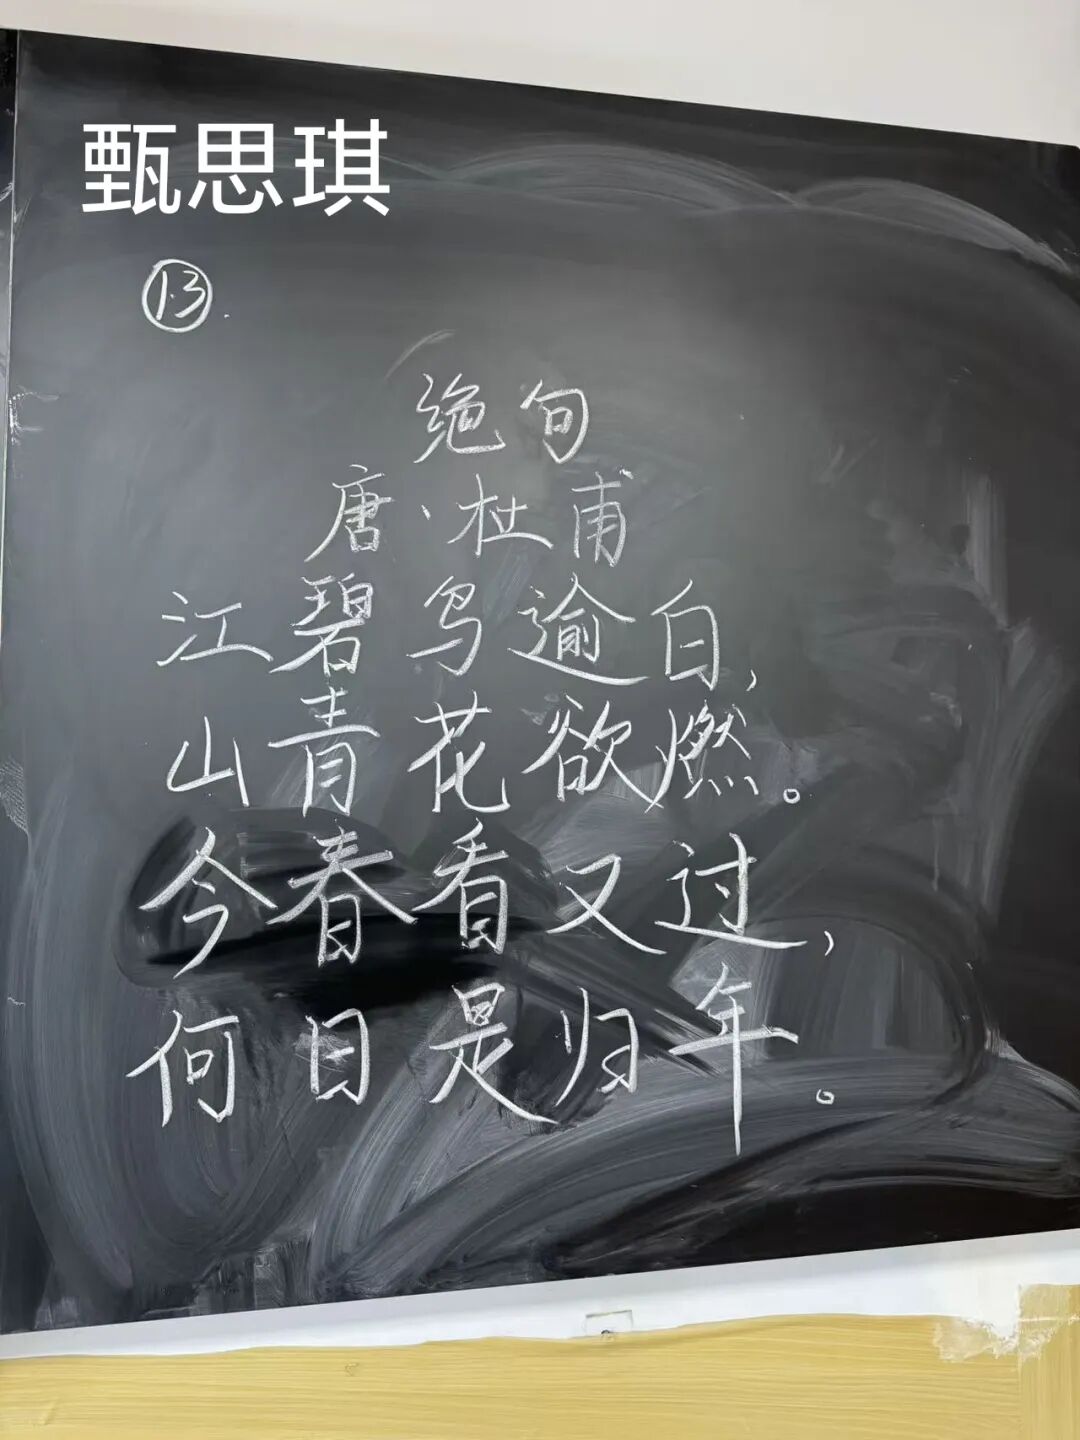 甄思琪
13
绝句
唐·杜甫
江碧鸟逾白，
山青花欲燃。
今春看又过，
何日是归年。